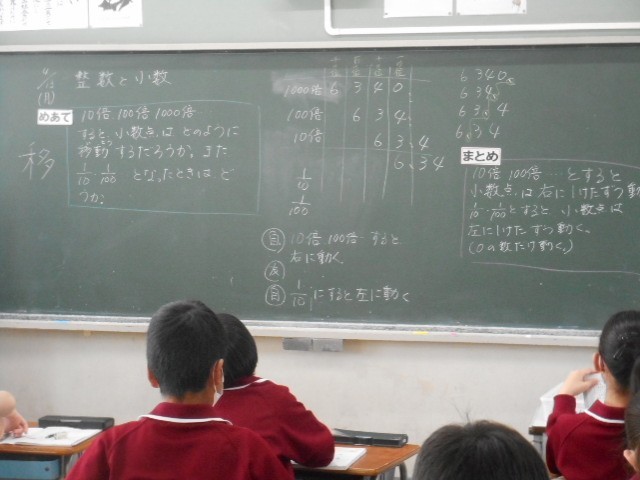 4/12
(月)
整数と小数
めあて
10倍、100倍、1000倍…
すると、小数点はどのように
移動するだろうか。また
1/10、1/100となったときはど
うか。
移
1000倍 6 3 4 0.
100倍 6 3 4.
10倍 6 3.4
6.34
1/10
1/100
自 10倍 100倍…すると
右に動く。
友
1/10にすると左に動く
6340.
634.
63.4
6.34
まとめ
10倍 100倍…とすると
小数点は右に1けたずつ動
1/10、1/100とすると 小数点は
左に1けたずつ動く。
(0の数だけ動く。)